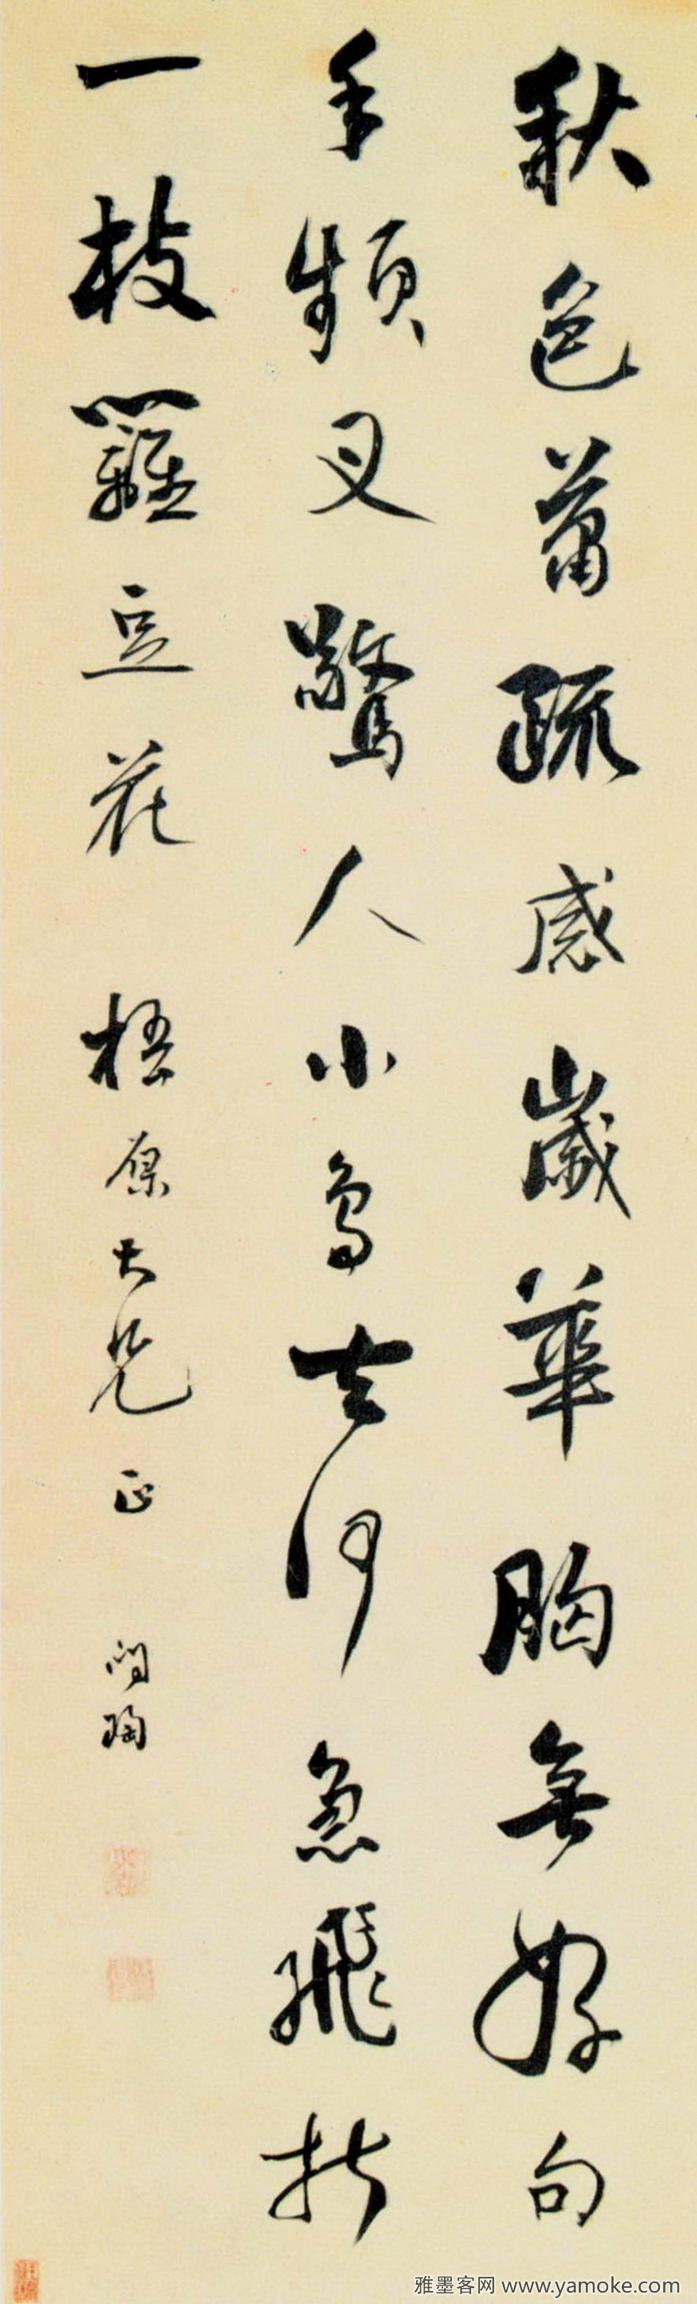 秋色蕭疏感歲華胸無好句
手頻叉驚人小鳥去何急飛折
一枝籬豆花 梧原大兄正 問陶
雅墨客网 www.yamoke.com